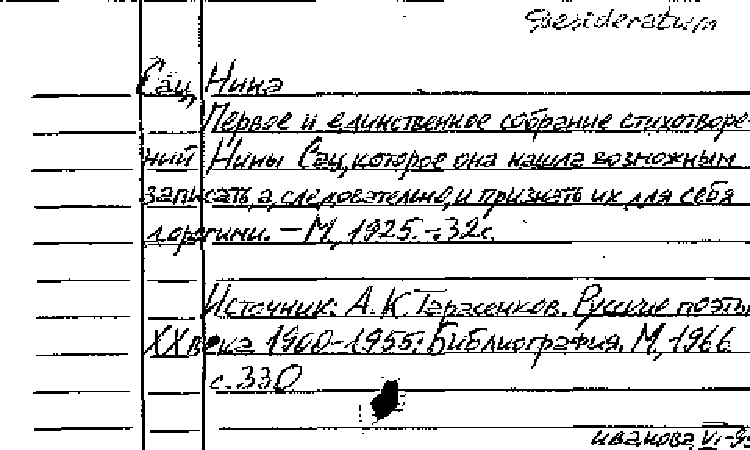 Desideratum
Сац, Нина
Первое и единственное собрание стихотворе-
ний Нины Сац, которое она нашла возможным
записать, а, следовательно, и признать их для себя
дорогими. – М., 1925. – 32 с.
Источник: А.К. Тарасенков. Русские поэты
XX века 1900-1955: Библиография. М., 1966
с. 330
Иванова VI-95